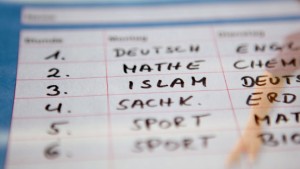 Stunde Montag Dienstag
1. DEUTSCH ENGL
2. MATHE CHEM
3. ISLAM DEUTS
4. SACHK. ERD
5 SPORT MAT
6. SPORT BIO